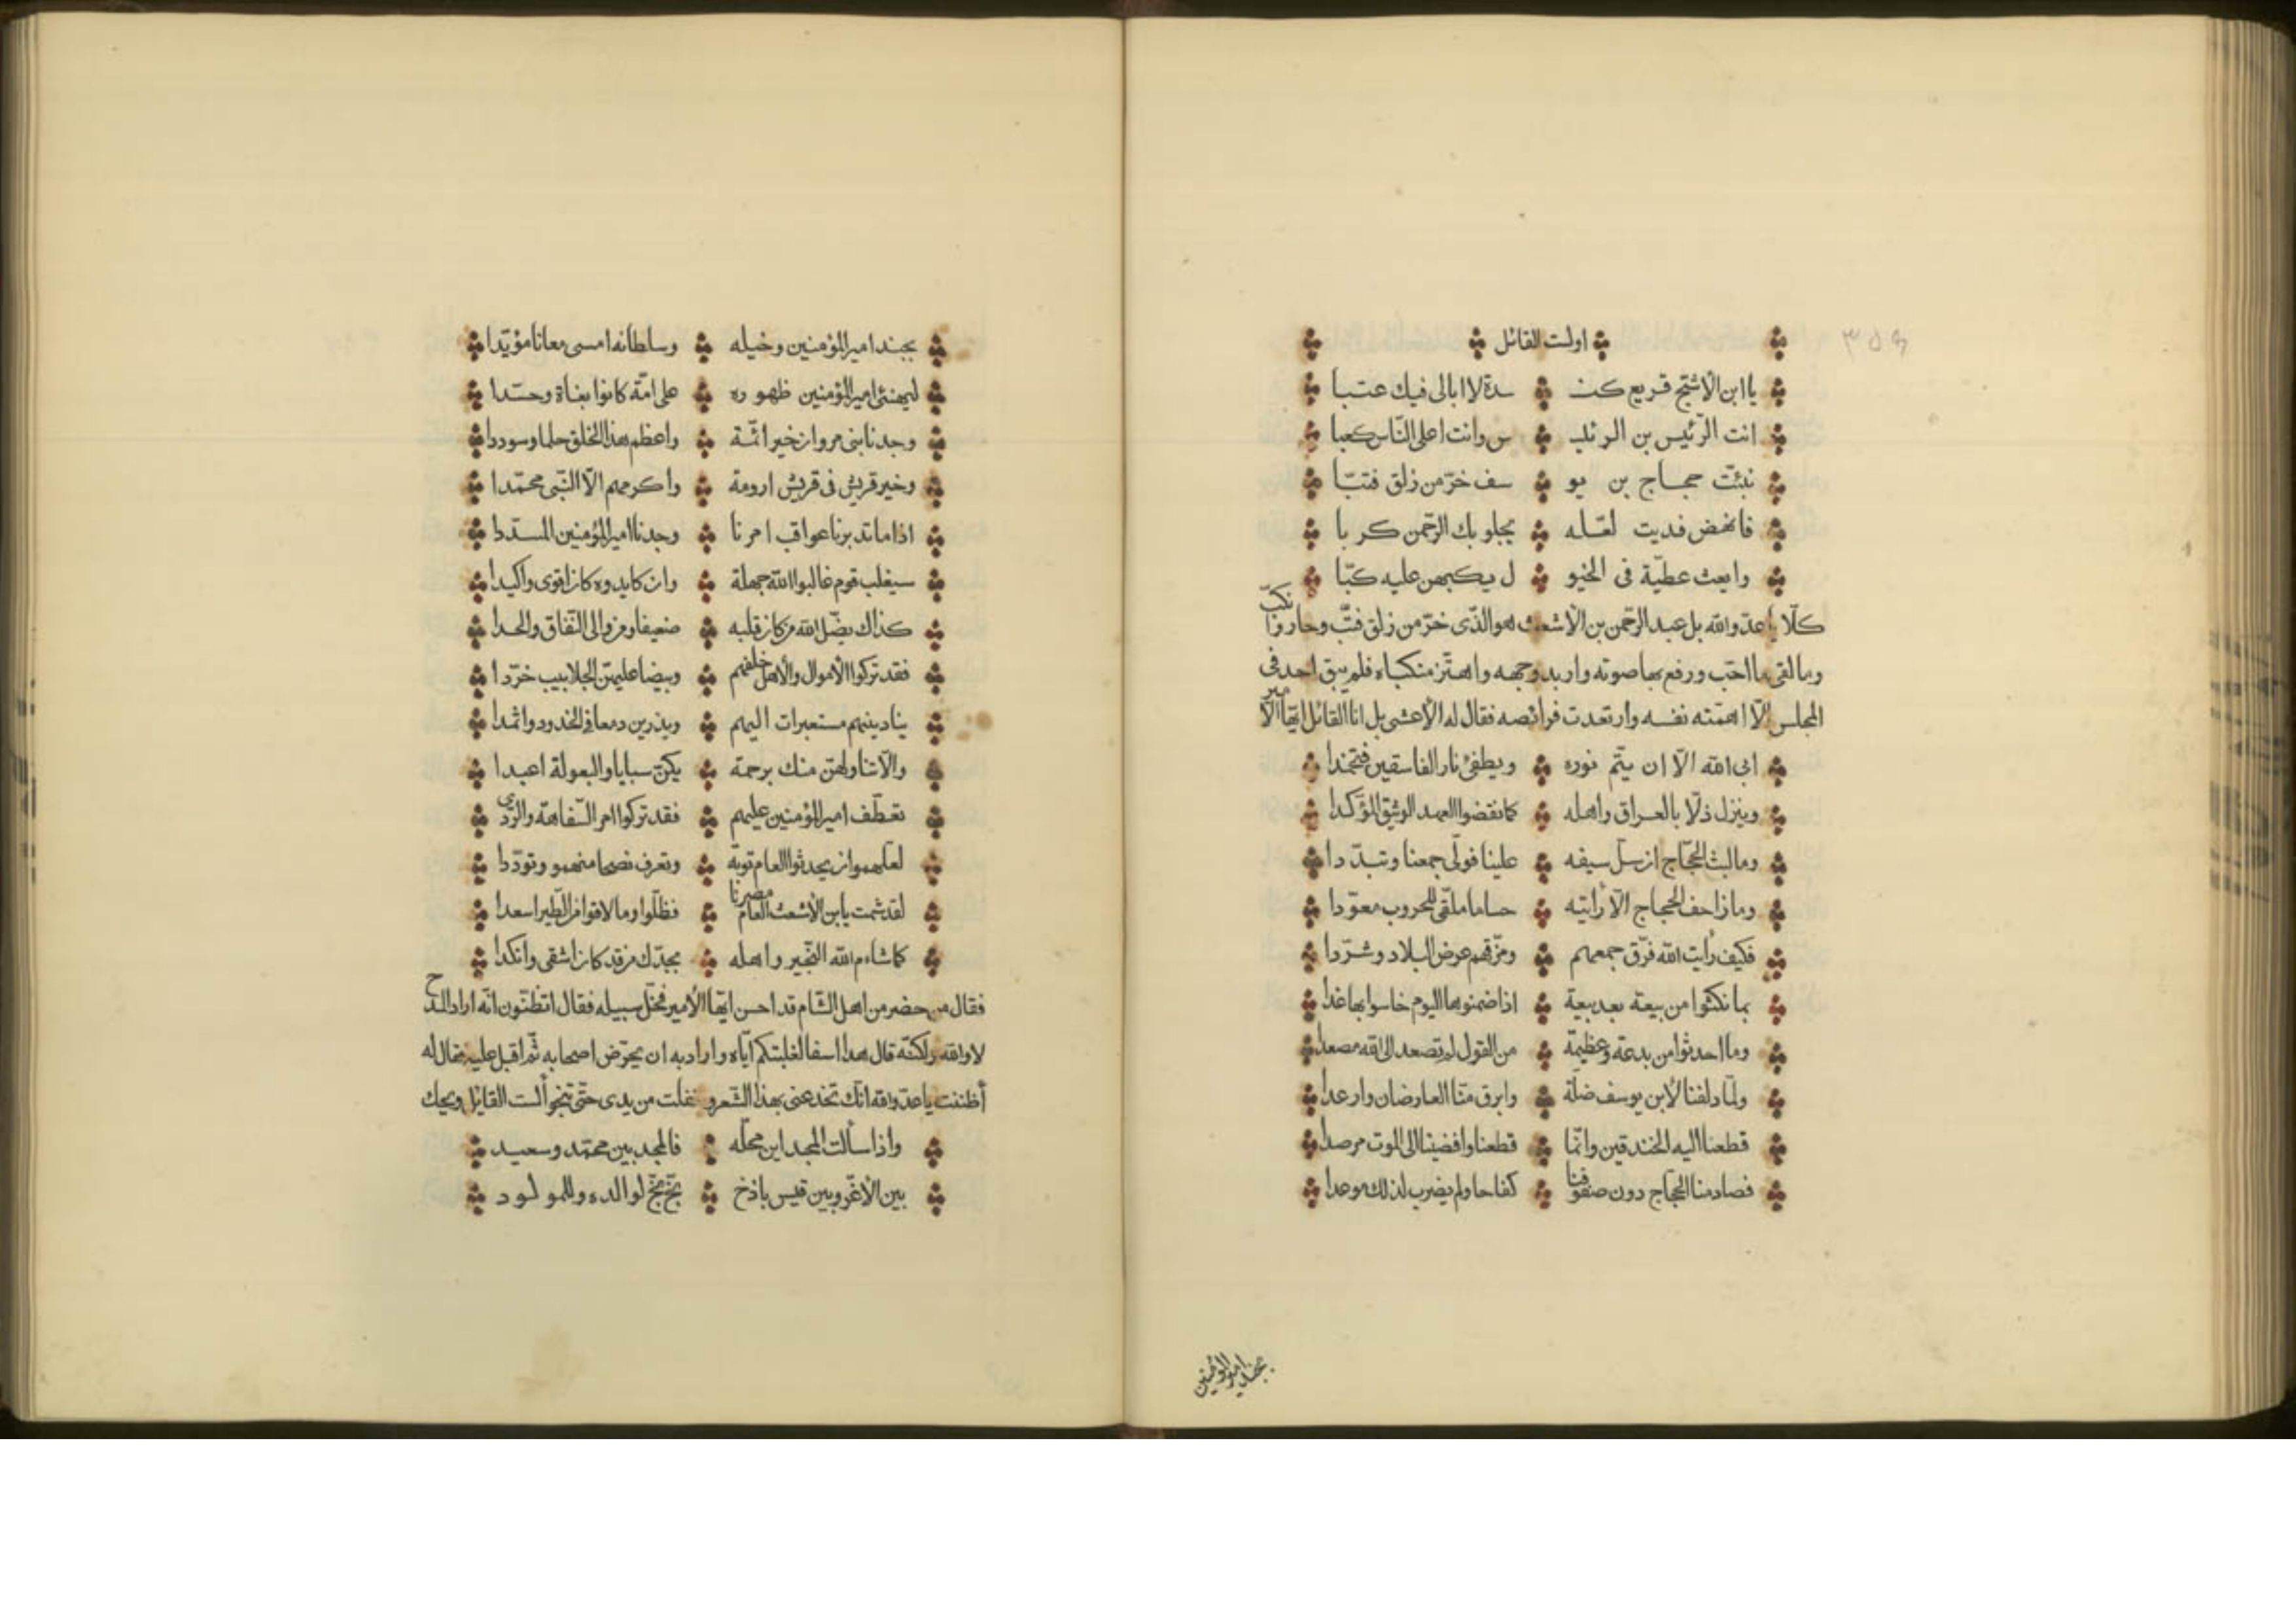 ٣٥٩
اولست القائل
يا ابن الأشج قريع كنـ سدة لا ابالى فيك عتبا
انت الرئيس بن الرئيـ س وانت اعلى الناس كعبا
نبئت حجاج بن يو سف خرّ من زلق فتبّا
فانهض فديت لعله يجلو بك الرحمن كربا
وابعث عطيّة فى الخيو ل يكبهن عليه كبّا
كلّا يا عدوّ الله بل عبد الرحمن بن الاشعث هو الذى خرّ من زلق فتبّ وحار وانكبّ
وما لقى ما احب ورفع بها صوته واربد وجهه واهتز منكباه فلم يبق احد فى
المجلس الّا اهمّته نفسه وارتعدت فرائصه فقال له الأعشى بل انا القائل ايها الأمير
ابى الله الّا ان يتمّ نوره ويطفئ نار الفاسقين فتخمدا
وينزل ذلّا بالعراق واهله كما نقضوا العهد الوثيق المؤكدا
وما لبث الحجّاج ان سلّ سيفه علينا فولّى جمعنا وتبدّدا
وما زاحف الحجاج الّا رأيته حساما ملقّى للحروب معوّدا
فكيف رأيت الله فرّق جمعهم ومزّقهم عرض البلاد وشرّدا
بما نكثوا من بيعة بعد بيعة اذا ضمنوها اليوم خاسوا بها غدا
وما احدثوا من بدعة وعظيمة من القول لم تصعد الى الله مصعدا
ولمّا دلفنا لأبن يوسف ضلّة وابرق منّا العارضان وارعدا
قطعنا اليه الخندقين وانّما قطعنا وافضينا الى الموت مرصدا
فصادمنا الحجّاج دون صفوفنا كفاحا ولم يضرب لذلك موعدا
بجند امير المؤمنين
بجند امير المؤمنين وخيله وسلطانه امسى معانا مؤيّدا
ليهنئ امير المؤمنين ظهوره على امّة كانوا بغاة وحسّدا
وجدنا بنى مروان خير ائمّة واعظم هذا الخلق حلما وسوددا
وخير قريش فى قريش ارومة واكرمهم الّا النّبى محمّدا
اذا ما تدبرنا عواقب امرنا وجدنا امير المؤمنين المسددا
سيغلب قوم غالبوا الله جهلة وان كايدوه كان اقوى واكيدا
كذاك يضلّ الله من كان قلبه ضعيفا ومن والى النّفاق والحدا
فقد تركوا الأموال والأهل خلفهم وبيضا عليهنّ الجلابيب خرّدا
ينادينهم مستعبرات اليهم ويذرين دمعا فى الخدود واثمدا
والّا تناولهنّ منك برحمة يكنّ سبايا والبعولة اعبدا
تعطّف امير المؤمنين عليهم فقد تركوا امر السّفاهة والرّدى
لعلّهمو ان يحدثوا العام توبة وتعرف نصحا منهمو وتودّدا
لقد شمت يابن الأشعث العام مصرنا فظلّوا وما لاقوا من الطّير اسعدا
كما شاءم الله النّجير واهله بجدّك من قد كان اشقى وانكدا
فقال من حضر من اهل الشّام قد احسن ايّها الأمير فخلّ سبيله فقال اتظنّون انّه اراد المدح
لا والله ولكنّه قال هذا اسفا لغلبتكم ايّاه واراد به ان يحرّض اصحابه ثمّ اقبل عليه فقال له
أظننت يا عدوّ الله انّك تخدعنى بهذا الشّعر وتفلت من يدى حتى تنجو ألست القايل ويحك
واذا سألت المجد اين محلّه فالمجد بين محمّد وسعيد
بين الأغرّ وبين قيس باذخ بخ بخ لوالده وللمولود